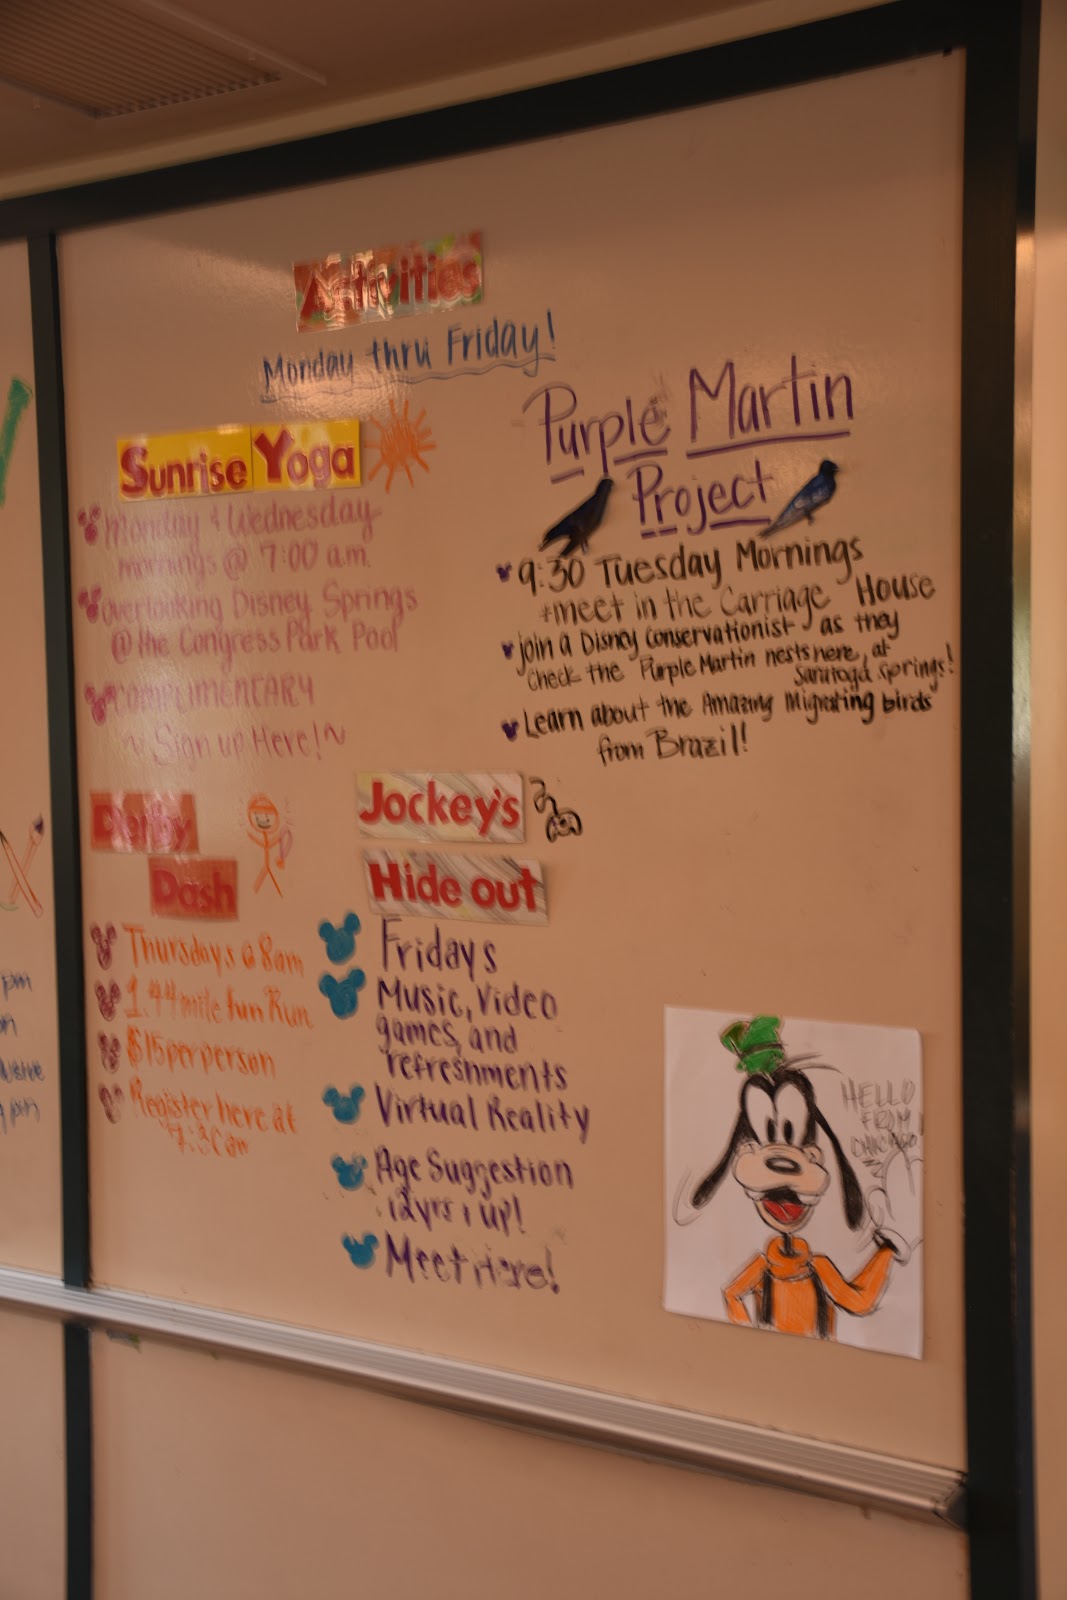 Activities
Monday thru Friday!
Sunrise Yoga
Monday & Wednesday
mornings @ 7:00 a.m.
overlooking Disney Springs
@ the Congress Park Pool
COMPLIMENTARY
~ Sign up Here! ~
Purple Martin
Project
9:30 Tuesday Mornings
+meet in the Carriage House
join a Disney Conservationist as they
check the Purple Martin nests here, at
Saratoga Springs!
Learn about the Amazing Migrating birds
from Brazil!
Derby
Dash
Thursdays @ 8am
1.44 mile fun Run
$15 per person
Register here at
7:30am
Jockey's
Hide out
Fridays
Music, Video
games, and
refreshments
Virtual Reality
Age Suggestion
12yrs & up!
Meet Here!
HELLO
FROM
CHICAGO!
pm